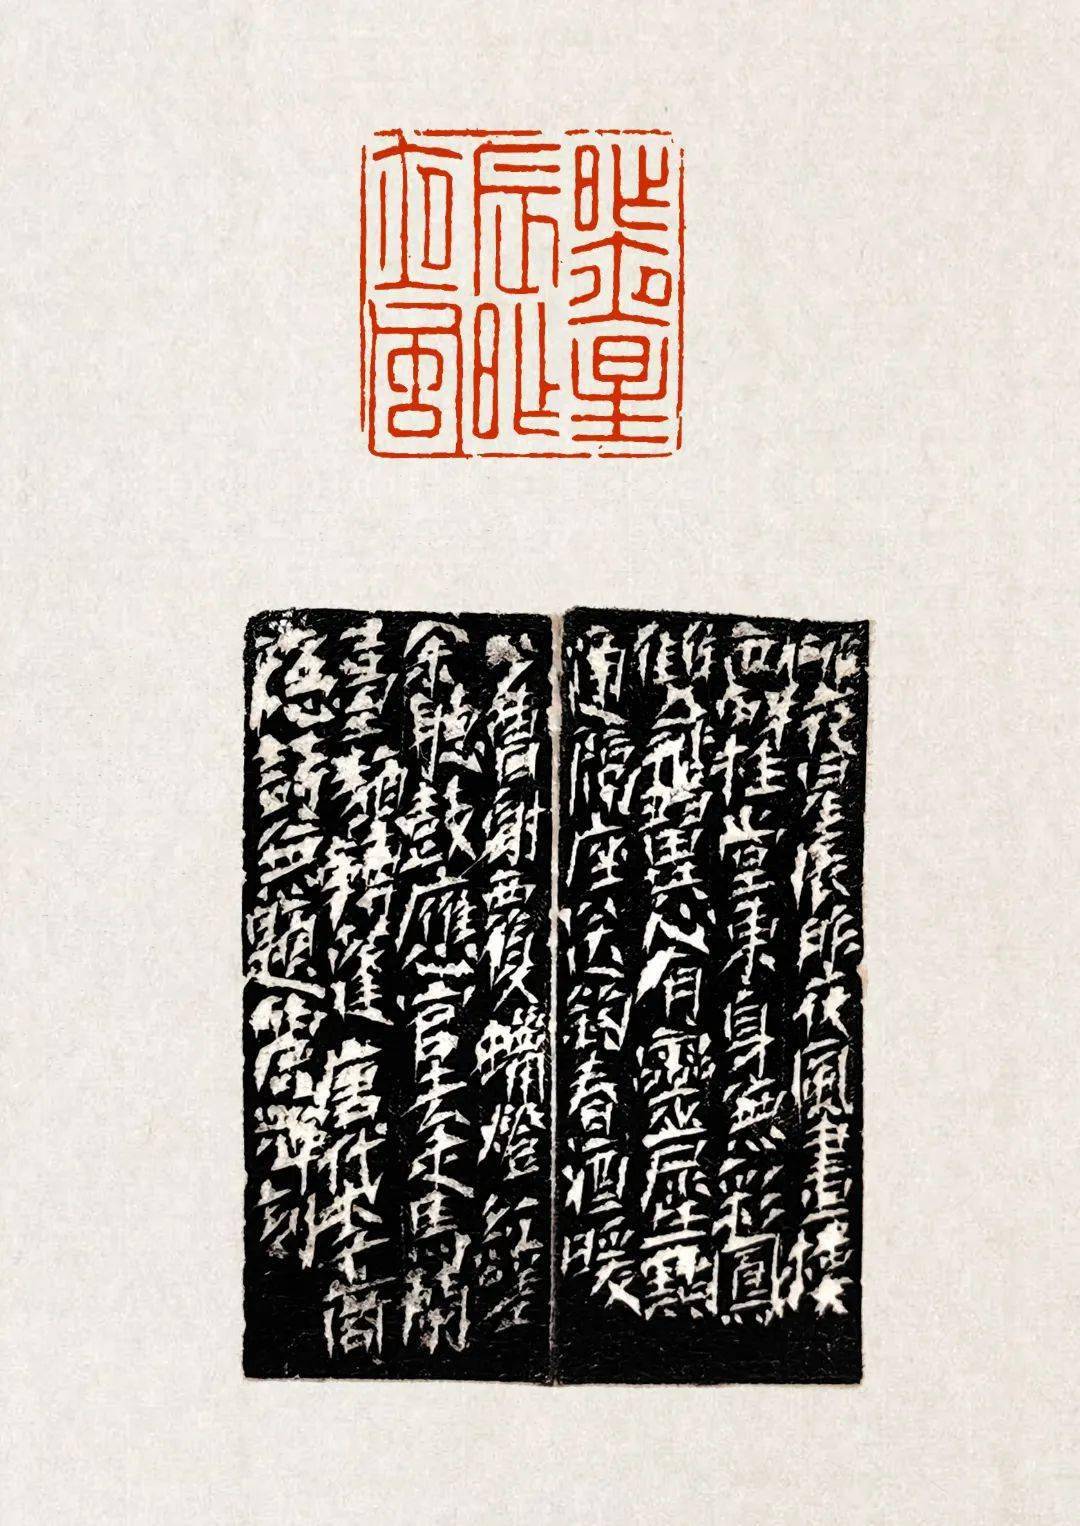 昨夜星
辰昨
夜風
昨夜星辰昨夜風畫樓
西畔桂堂東身無彩鳳
雙飛翼心有靈犀一點
通隔座送鉤春酒暖
分曹射覆蠟燈紅嗟
余聽鼓應官去走馬蘭
臺類轉蓬唐代李商
隱詩無題刻